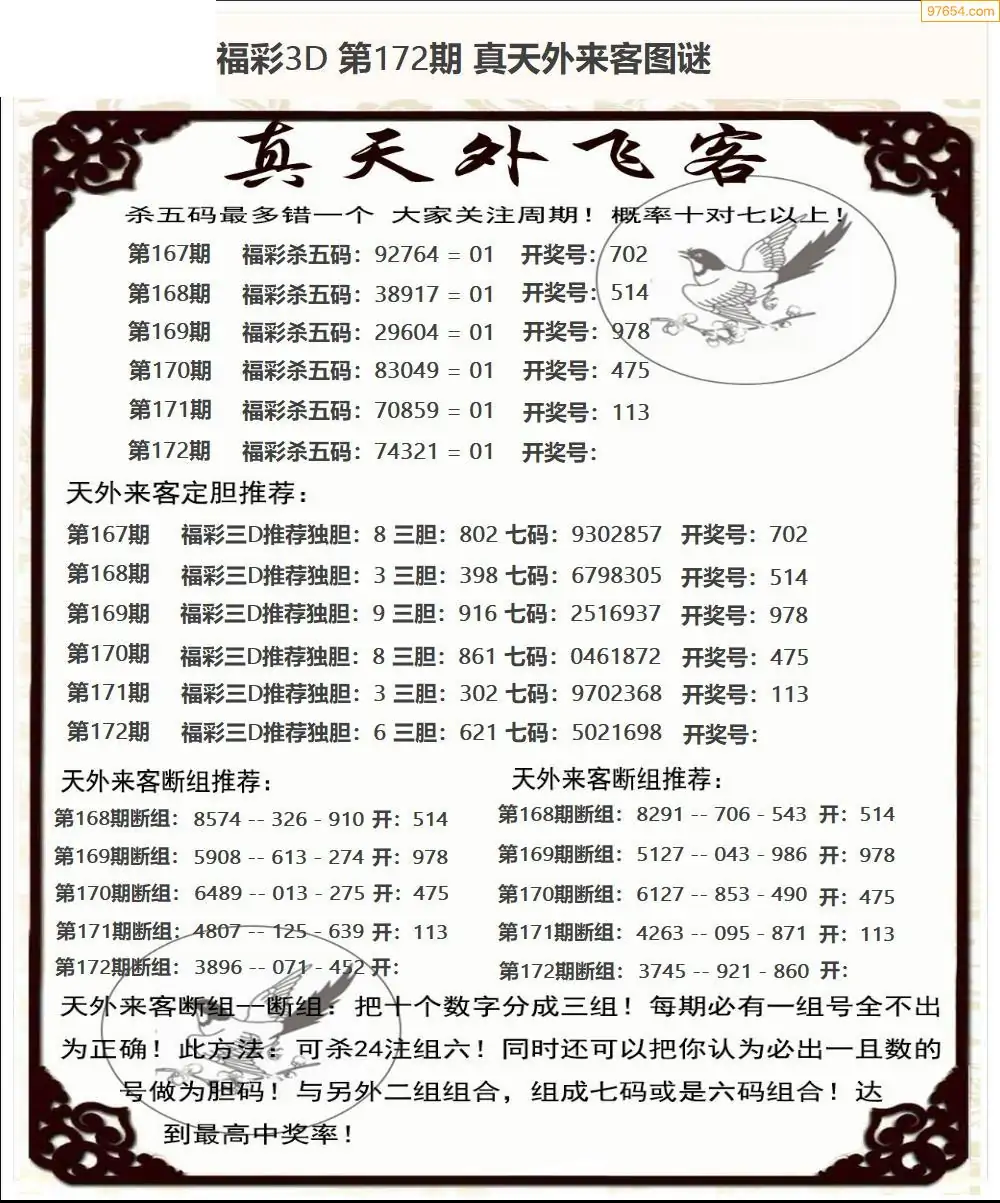 97654.com
福彩3D 第172期 真天外来客图谜
真天外飞客
杀五码最多错一个 大家关注周期！概率十对七以上！
第167期 福彩杀五码：92764 = 01 开奖号：702
第168期 福彩杀五码：38917 = 01 开奖号：514
第169期 福彩杀五码：29604 = 01 开奖号：978
第170期 福彩杀五码：83049 = 01 开奖号：475
第171期 福彩杀五码：70859 = 01 开奖号：113
第172期 福彩杀五码：74321 = 01 开奖号：
天外来客定胆推荐：
第167期 福彩三D推荐独胆：8 三胆：802 七码：9302857 开奖号：702
第168期 福彩三D推荐独胆：3 三胆：398 七码：6798305 开奖号：514
第169期 福彩三D推荐独胆：9 三胆：916 七码：2516937 开奖号：978
第170期 福彩三D推荐独胆：8 三胆：861 七码：0461872 开奖号：475
第171期 福彩三D推荐独胆：3 三胆：302 七码：9702368 开奖号：113
第172期 福彩三D推荐独胆：6 三胆：621 七码：5021698 开奖号：
天外来客断组推荐：
第168期断组：8574 -- 326 - 910 开：514
第169期断组：5908 -- 613 - 274 开：978
第170期断组：6489 -- 013 - 275 开：475
第171期断组：4807 -- 125 - 639 开：113
第172期断组：3896 -- 071 - 452 开：
天外来客断组推荐：
第168期断组：8291 -- 706 - 543 开：514
第169期断组：5127 -- 043 - 986 开：978
第170期断组：6127 -- 853 - 490 开：475
第171期断组：4263 -- 095 - 871 开：113
第172期断组：3745 -- 921 - 860 开：
天外来客断组一断组：把十个数字分成三组！每期必有一组号全不出
为正确！此方法：可杀24注组六！同时还可以把你认为必出一且数的
号做为胆码！与另外二组组合，组成七码或是六码组合！达
到最高中奖率！